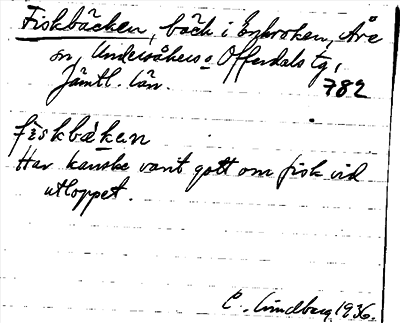 Fiskbäcken, bäck i Enkroken, Åre
sn, Undersåkers o Offerdals tg,
Jämtl. län. 782
fiskbækan
Har kanske varit gott om fisk vid
utloppet.
C. Lindberg 1936.